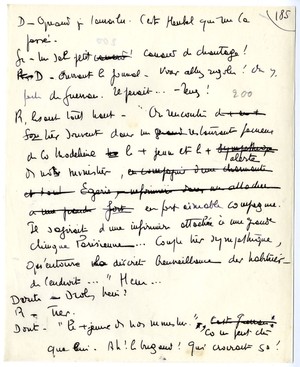 185
D – Quand j'
C'est
qui me l'a
passé.
G – Un joli petit canard ! Canard de chantage !
D – Ouvrant le journal – Vous allez rigoler ! On y
parle de
Il paraît... – Tenez ! 200
R, lisant tout haut – "On rencontre
très souvent dans un restaurant fameux
de la Madeleine le + jeune et le +
alerte
de nos ministres,
en fort aimable compagnie.
Il s'agirait d'une infirmière attachée à une grande
clinique Parisienne... Couple très sympathique,
qu'entoure la discrète bienveillance des habitués
de l'endroit..." Hum...
– Drôle, hein ?
R – Très.
– "Le + jeune de nos ministres",
Ce ne peut être
que lui. Ah ! le brigand ! Qui croirait ça !